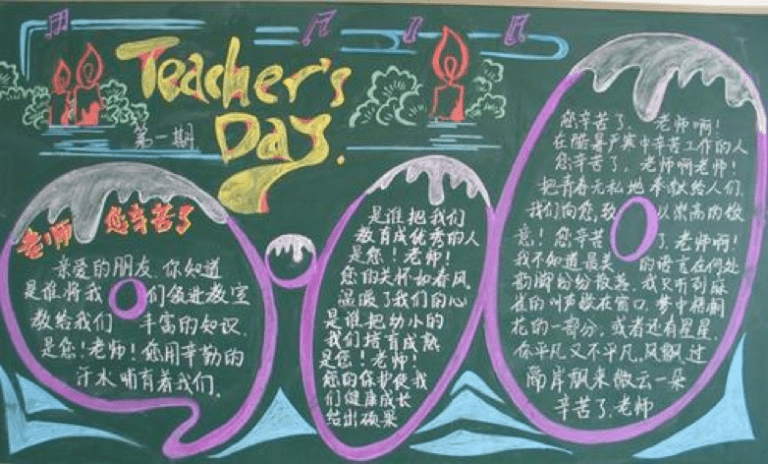 Teacher's
Day.
第一期
老师 您辛苦了
亲爱的朋友.你知道
是谁将我们领进教室
教给我们丰富的知识.
是您!老师!您用辛勤的
汗水哺育着我们.
是谁把我们
教育成优秀的人
是您!老师!
您的关怀如春风
温暖了我们的心
是谁把幼小的
我们培育成熟
是您!老师!
您的保护使我
们健康成长
结出硕果
您辛苦了,老师啊!
在酷暑严寒中辛苦工作的人
您辛苦了,老师啊老师!
把青春无私地奉献给人们.
我们向您,致以崇高的敬
意!您辛苦了.老师啊!
我不知道最美的语言在何处
韵脚纷纷散落.我只听到麻
雀的叫声歇在窗口.梦中梧桐
花的一部分.或者还有星星.
你平凡又不平凡,风飘过
隔岸飘来微云一朵
辛苦了,老师